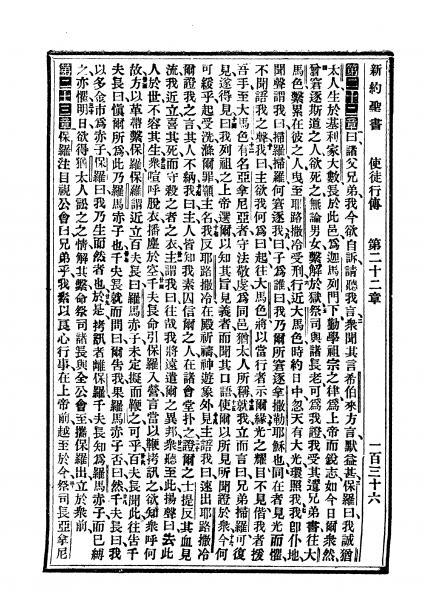 新約聖書　使徒行傳　第二十二章　一百三十六
第二十二章曰諸父兄弟我今欲自訴請聽我言衆聞其言希伯來方言默益甚保羅曰我誠猶
太人生於基利家大數長於此邑爲迦馬列門下勤學祖宗之律爲上帝前而銳志如今日爾衆然
曾窘逐斯道之人欲死之無論男女繫解於獄祭司與諸長老可爲我證我受其遺兄弟書往大
馬色繫累在彼之人曳至耶路撒冷受刑行近大馬色時約日中忽天有大光環照我我卽仆地
聞聲謂我曰掃羅掃羅何窘逐我曰子爲誰曰我乃爾所窘逐拿撒勒耶穌也同在者見光而懼
不聞語我之聲我曰主欲我何爲曰起往大馬色將以當行者示爾緣光之耀目不見偕我者援
吾手至大馬色有名亞拿尼亞者守法敬虔爲同邑猶太人所稱就我立而言曰兄弟掃羅可復
見遂得見曰我列祖之上帝選爾以知其旨見義者而聞其口語使爾以所見所聞證於衆今何
可緩乎起受洗滌爾罪籲主名我反耶路撒冷在殿祈禱神遊象外見主語我曰速出耶路撒冷
爾證我之言其人不納我曰主人皆知我素囚信爾之人在諸會堂扑之證爾之士提反其血見
流我近立喜其死而守殺之者之衣主謂我曰往哉我將遠遣爾之異邦衆聽至此揚聲曰去此
人於世不容其生衆喧呼脫衣播塵於空千夫長命引保羅入營言當以鞭拷訊之欲知衆呼何
故方以革帶繫保羅保羅謂近立百夫長曰羅馬赤子未定擬而鞭之可乎百夫長聞此往告千
夫長曰愼爾所爲此乃羅馬赤子也千夫長就而問曰爾告我果羅馬赤子否曰然千夫長曰我
以多金市爲赤子保羅曰我乃生而然者也於是拷訊者離保羅千夫長知爲羅馬赤子而已縛
之亦懼明日欲得猶太人訟之之情解其繫命祭司諸長與全公會至攜保羅出立於衆前
第二十三章保羅注目視公會曰兄弟乎我素以良心行事在上帝前越至於今祭司長亞拿尼